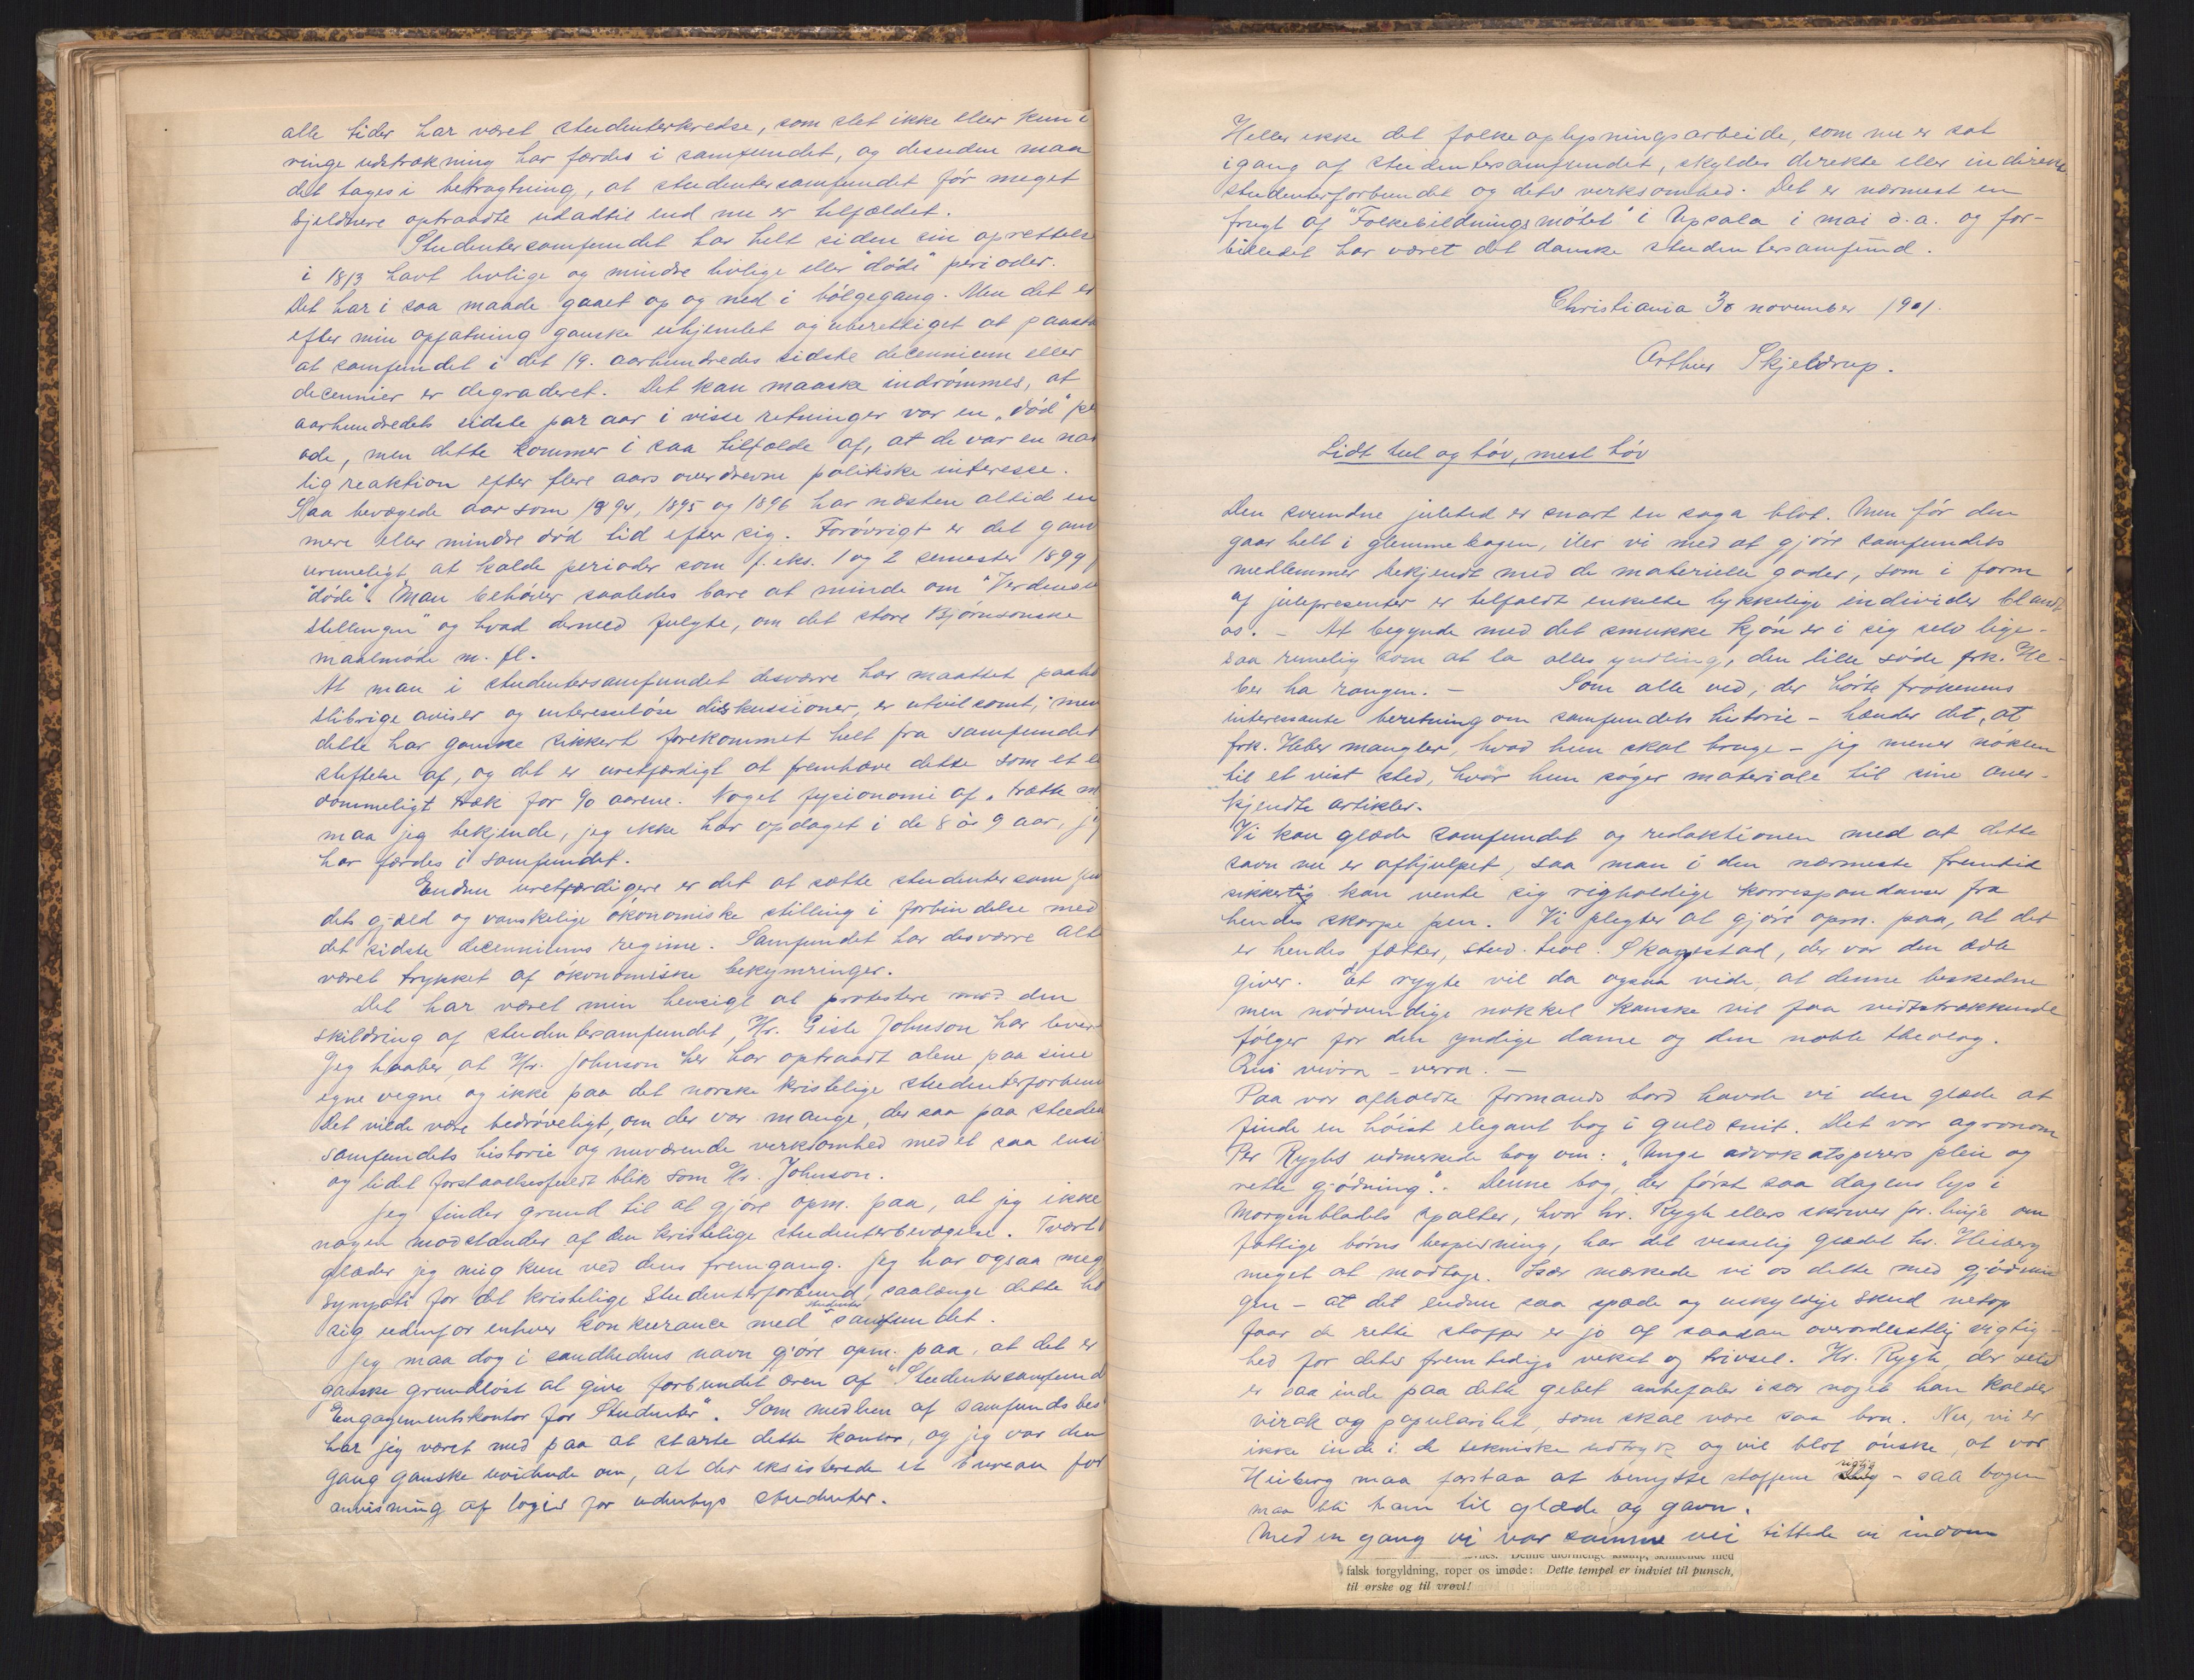 alle tider har været studenterkredse, som slet ikke eller kun i
ringe udstrækning har færdes i samfundet, og desuden maa
det tages i betragtning, at studentersamfundet før meget
sjeldnere optraadte udadtil end nu er tilfældet.
Studentersamfundet har helt siden sin oprettelse
i 1813 havt livlige og mindre livlige eller "døde" perioder.
Det har i saa maade gaaet op og ned i bølgegang. Men det er
efter min opfatning ganske uhjemlet og uberettiget at paasta
at samfundet i det 19. aarhundredes sidste decennium eller
decennier er degraderet. Det kan maaske indrømmes, at
aarhundredets sidste par aar i visse retninger var en „død" pe
ode, men dette kommer i saa tilfælde af, at de var en na
lig reaktion efter flere aars overdrevne politiske interesse.
Saa bevægede aar som 1894, 1895 og 1896 har næsten altid en
mere eller mindre død tid efter sig. Forøvrigt er det gan
urimeligt at kalde perioder som f. eks. 1 og 2 semester 1899
"døde". Man behøver saaledes bare at minde om "Verdens
stillingen" og hvad dermed fulgte, om det store Bjørnsonske
maalmøde m. fl.
At man i studentersamfundet desværre har maattet paahø
slibrige aviser og interesseløse diskussioner, er utvilsomt, men
dette har ganske sikkert forekommet helt fra samfundets
stiftelse af, og det er uretfærdigt at fremhæve dette som et e
dommeligt træk for 90 aarene. Noget fysionomi af „trætte m
maa jeg bekjende, jeg ikke har opdaget i de 8 à 9 aar, jeg
har færdes i samfundet.
Endnu uretfærdigere er det at sætte studentersamfun
dets gjæld og vanskelige økonomiske stilling i forbindelse med
det sidste decenniums regime. Samfundet har desværre alt
været trykket af økonomiske bekymringer.
Det har været min hensigt at protestere mod den
skildring af studentersamfundet, Hr. Gisle Johnson har lever
Jeg haaber, at Hr. Johnson her har optraadt alene paa sine
egne vegne og ikke paa det norske kristelige studenterforbun
Det vilde være bedrøveligt, om der var mange, der saa paa studen
samfundets historie og nuværende verksomhed med et saa ensi
og lidet forstaaelsesfuldt blik som Hr. Johnson.
Jeg finder grund til at gjøre opm. paa, at jeg ikke
nogen modstander af den kristelige studenterbevægelse. Tvært
glæder jeg mig kun ved dens fremgang. Jeg har ogsaa meg
sympati for det kristelige Studenterforbund, saalænge dette hol
sig udenfor enhver konkurance med studentersamfundet.
Jeg maa dog i sandhedens navn gjøre opm. paa, at det er
ganske grundløst at give forbundet æren af "Studentersamfund
Engagementskontor for Studenter". Som medlem af samfundsbes
har jeg været med paa at starte dette kontor, og jeg var den
gang ganske uvidende om, at der eksisterede et bureau for
anvisning af logis for udenbys studenter.
Heller ikke det folkeoplysningsarbeide, som nu er sat
igang af studentersamfundet, skyldes direkte eller indirekte
studenterforbundet og dets verksomhed. Det er nærmest en
frugt af "Folkebildningsmötet" i Upsala i mai d. a. og for-
billedet har været det danske studentersamfund.
Christiania 30 november 1901.
Arthur Skjeldrup.
Lidt tul og tøv, mest tøv
Den svundne juletid er snart en saga blot. Men før den
gaar helt i glemmebogen, iler vi med at gjøre samfundets
medlemmer bekjendt med de materielle goder, som i form
af julepresenter er tilfaldt enkelte lykkelige individer blandt
os. - At begynde med det smukke kjøn er i sig selv lige-
saa rimelig som at la alles yndling, den lille søde frk. He-
ber ha rangen. - Som alle ved, der hørte frøkenens
interessante beretning om samfundets historie - hænder det, at
frk. Heber mangler, hvad hun skal bruge - jeg mener nøklen
til et vist sted, hvor hun søger materiale til sine aner-
kjendte artikler.
Vi kan glæde samfundet og redaktionen med at dette
savn nu er afhjulpet, saa man i den nærmeste fremtid
sikkertig kan vente sig righoldige korrespondanser fra
hendes skarpe pen. Vi plegter at gjøre opm. paa, at det
er hendes fætter, stud. teol. Skagestad, der var den ædle
giver. Et rygte vil da ogsaa vide, at denne beskedne
men nødvendige nøkkel kanske vil faa vidtrækkende
følger for den yndige dame og den noble theolog.
Qui vivra - verra. -
Paa vor afholdte formands bord havde vi den glæde at
finde en høist elegant bog i guldsnit. Det var agronom
Per Ryghs udmerkede bog om: „Unge advokatspirers pleie og
rette gjødning". - Denne bog, der først saa dagens lys i
Morgenbladets spalter, hvor hr. Rygh ellers skriver pr. linje om
fattige børns bespisning, har det virkelig glædet hr. Heiberg
meget at modtage. Især mærkede vi os dette med gjødnin
gen - at det endnu saa spæde og uskyldige skud netop
faar de rette stoffer er jo af saadan overordentlig vigtig-
hed for dets fremtidige vekst og trivsel. Hr. Rygh, der selv
er saa inde paa dette gebet anbefaler især noget han kalder
virak og popularitet, som skal være saa bra. Nu, vi er
ikke inde i de tekniske udtryk og vil blot ønske, at vor
Heiberg maa forstaa at benytte stoffene rigtig - saa bogen
maa bli ham til glæde og gavn.
Med en gang vi var samme vei tittede vi indom
falsk forgyldning, roper os imøde: Dette tempel er indviet til punsch,
til ørske og til vrøvl!